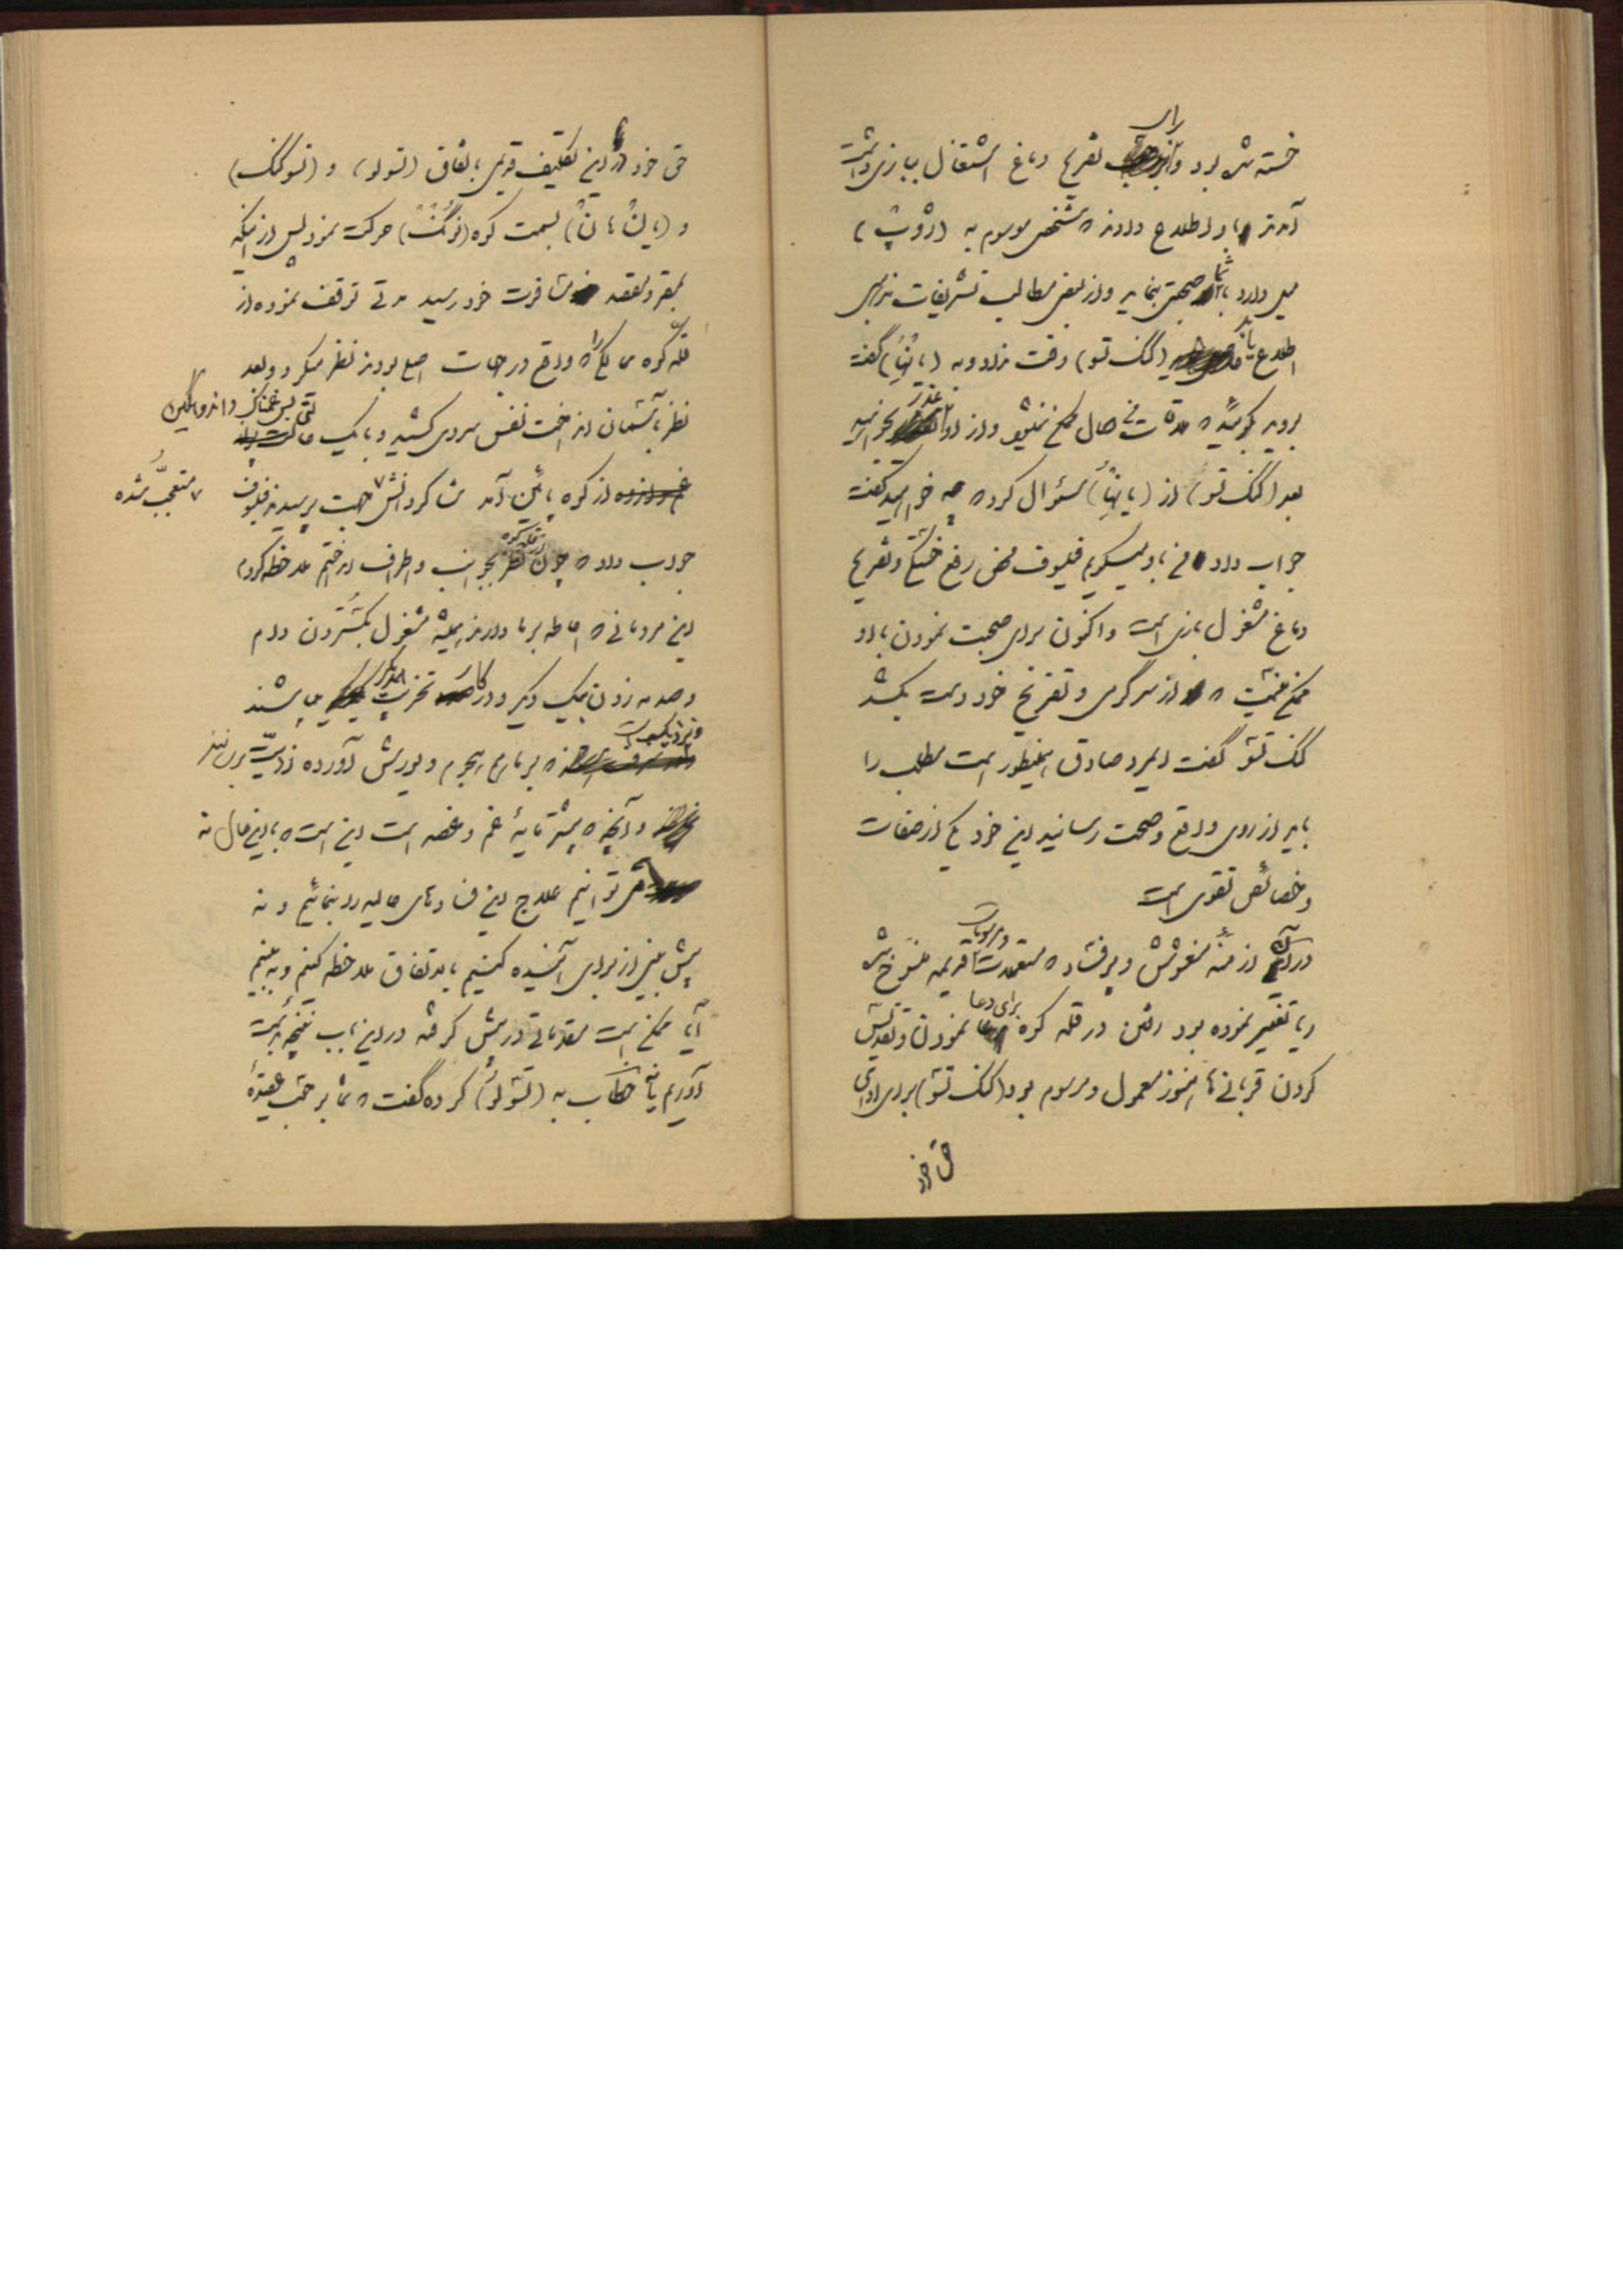 خسته شده بود و برای تفریح دماغ اشتغال ببازی داشت
آمدند باو اطلاع دادند که شخصی موسوم به
میل دارد با شما صحبتی بنماید و از بعضی مطالب تشریفات مذهبی
اطلاع یابد (کنگ تسو) وقت نداد و به گفت
بروید بگوئید که ملاقات فی الحال ممکن نمیشود و از او عذر بخواهید
بعد (کنگ تسو) از سئوال کرد که چه خواهید گفت
جواب داد من باو میگویم فیلسوف محض رفع خستگی و تفریح
دماغ مشغول بازی است و اکنون برای صحبت نمودن با او
ممکن نیست که از سرگرمی و تفریح خود دست بکشد
کنگ تسو گفت ای مرد صادق اینطور است مطلب را
باید از روی واقع و صحت رسانید این خود یکی از صفات
و خصائص تقوی است
در آن ازمنهٔ مغشوش و پر فساد که معتقدات و مرسومات قدیمه منسوخ شده
و یا تغییر نموده بود رفتن در قله کوه برای دعا نمودن و تقدیس
کردن قربانی ها هنوز معمول و مرسوم بود (کنگ تسو) برای ادای
حق خود
حق خود در این تکلیف قدیمی باتفاق (تسولو) و (تسوکنگ)
و بسمت کوه حرکت نمود پس از اینکه
بمقر و مقصد مسافرت خود رسید مدتی توقف نموده از
قله کوه ممالکی را که واقع در جهات اربع بودند نظر میکرد و بعد
نظر بآسمان انداخت نفس سردی کشید و با یک حالتی بس غمناک و اندوهگین
از کوه پائین آمد شاگردانش متعجب شده جهت پرسیدند فیلسوف
جواب داد که چون از قله کوه نظر بجوانب و اطراف انداختم ملاحظه کردم
این مردمانی که احاطه بر ما دارند همیشه مشغول بگستردن دام
و صدمه زدن بیک دیگر و در کار تخریب یکدیگر می باشند
و نزدیک است که بر ما هم هجوم و یورش آورده اذیت برسانند
و آنچه که بیشتر مایهٔ غم و غصه است این است که با این حال نه
می توانیم علاج این فسادهای حالیه را بنمائیم و نه
پیش بینی از برای آینده کنیم باتفاق ملاحظه کنیم و به بینیم
آیا ممکن است مقدماتی در پیش گرفته در این باب نتیجه بدست
آوریم یا نه خطاب به (تسولو) کرده گفت که شما بر حسب عقیدهٔ